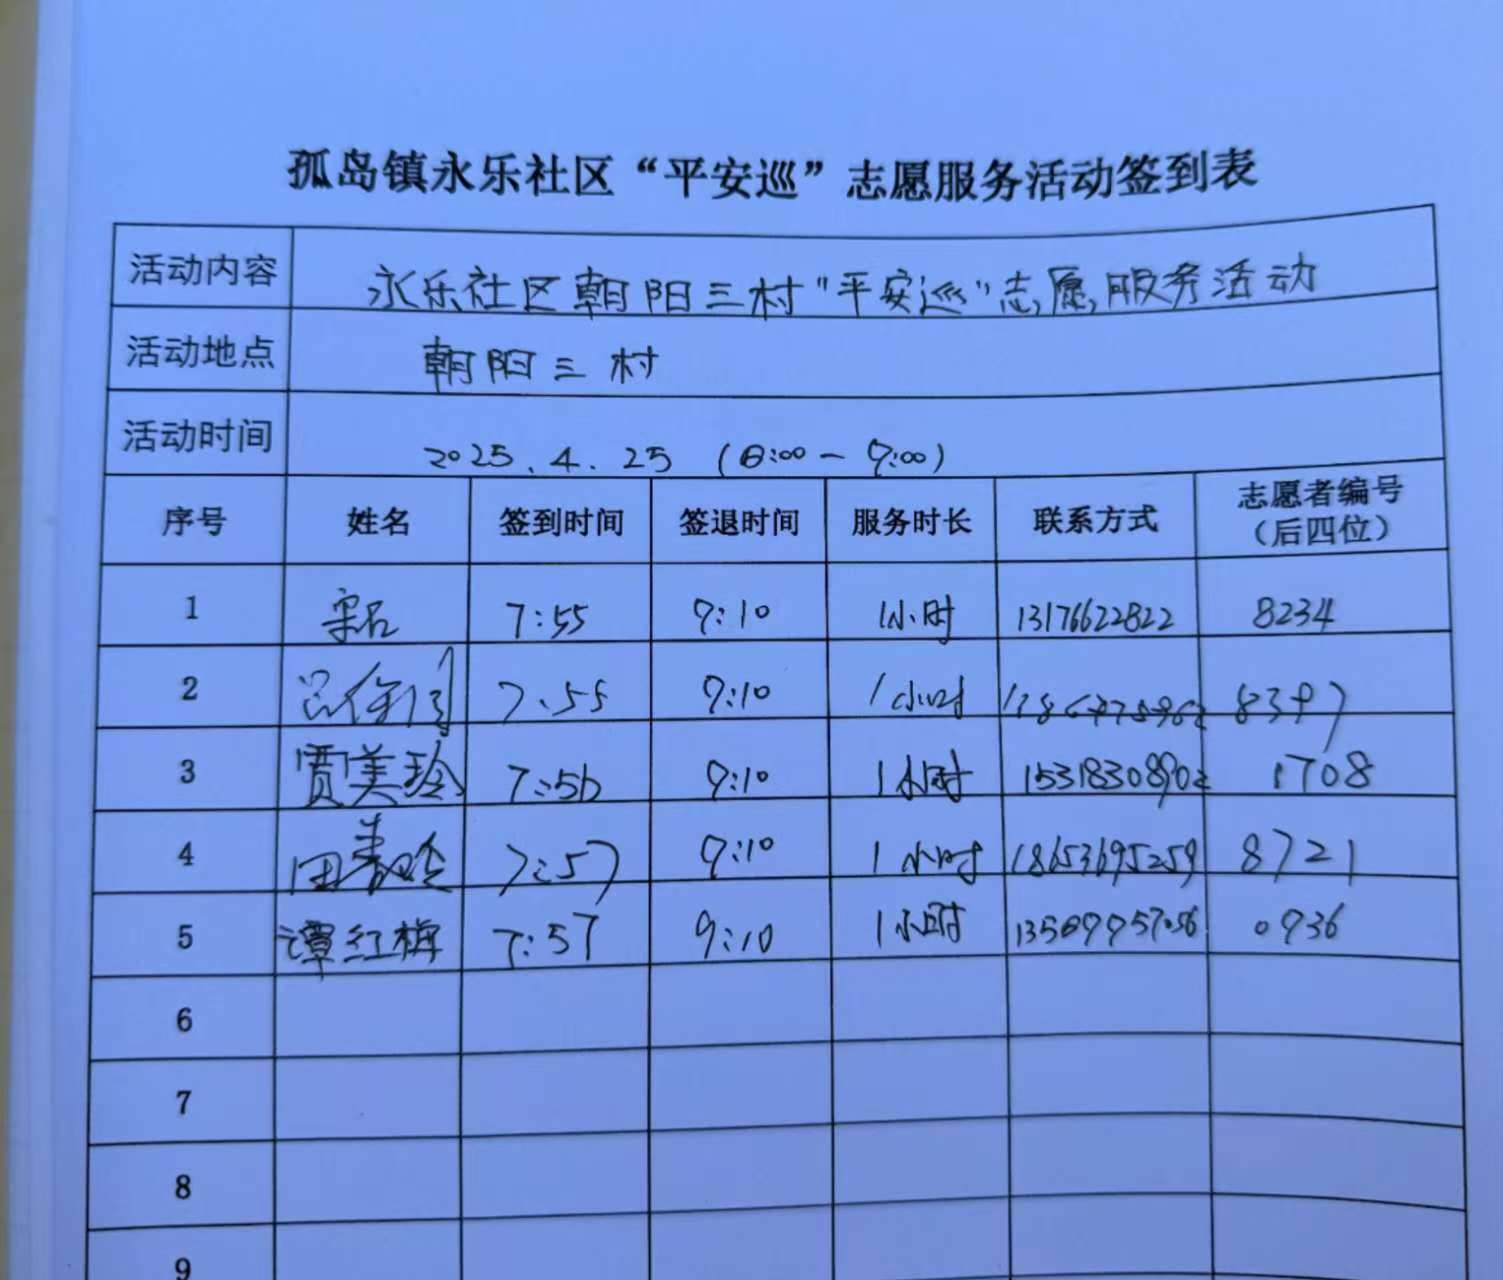 孤岛镇永乐社区“平安巡”志愿服务活动签到表
活动内容 永乐社区朝阳三村"平安巡"志愿服务活动
活动地点 朝阳三村
活动时间 2025.4.25 (8:00-9:00)
序号 姓名 签到时间 签退时间 服务时长 联系方式 志愿者编号（后四位）
1 7:55 9:10 1小时 13176622822 8234
2 7.55 9:10 1小时
3 贾美玲 7:56 9:10 1小时 15318308902 1708
4 7:57 9:10 1小时 18653695259 8721
5 谭红梅 7:57 9:10 1小时 0936
6
7
8
9